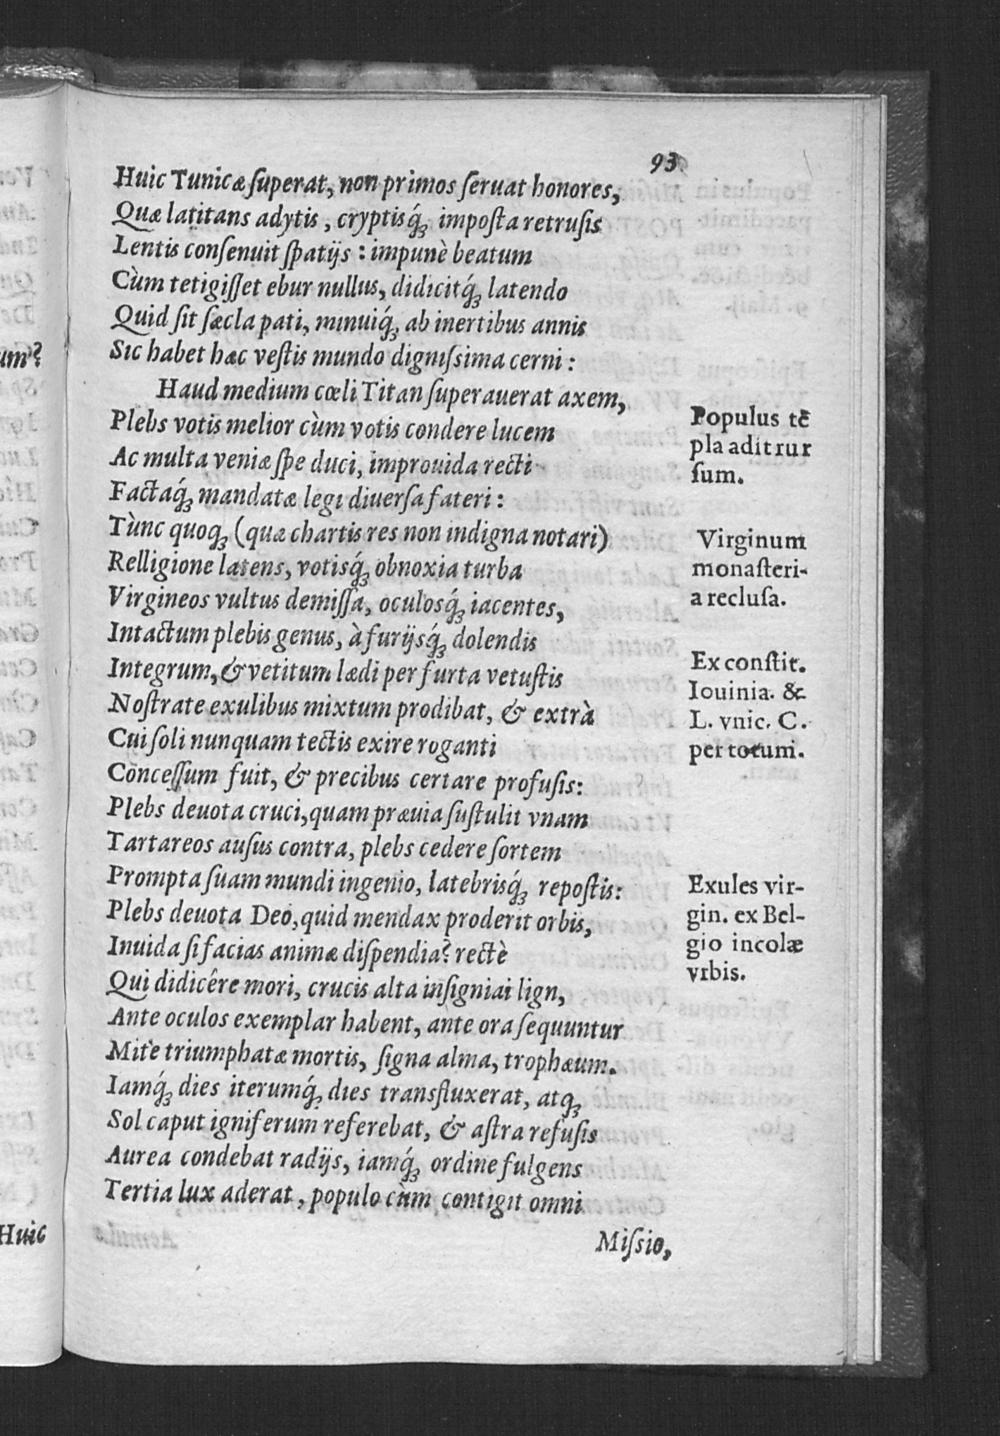 93
Huic Tunicæ ſuperat, non primos ſeruat honores,
Quæ latitans adytis, cryptisq́ꝫ impoſta retruſis
Lentis conſenuit ſpatijs : impunè beatum
Cùm tetigiſſet ebur nullus, didicitq́ꝫ latendo
Quid ſit ſæcla pati, minuiq́ꝫ ab inertibus annis
Sic habet hæc veſtis mundo digniſsima cerni :
Haud medium cœli Titan ſuperauerat axem,
Plebs votis melior cùm votis condere lucem
Ac multa veniæ ſpe duci, improuida recti
Factaq́ꝫ mandatæ legi diuerſa fateri :
Tùnc quoqꝫ (quæ chartis res non indigna notari)
Relligione latens, votisq́ꝫ obnoxia turba
Virgineos vultus demiſſa, oculosq́ꝫ iacentes,
Intactum plebis genus, à furijsq́ꝫ dolendis
Integrum, & vetitum lædi per furta vetuſtis
Noſtrate exulibus mixtum prodibat, & extrà
Cui ſoli nunquam tectis exire roganti
Conceſſum fuit, & precibus certare profuſis:
Plebs deuota cruci, quam præuia ſuſtulit vnam
Tartareos auſus contra, plebs cedere ſortem
Prompta ſuam mundi ingenio, latebrisq́ꝫ repoſtis:
Plebs deuota Deo, quid mendax proderit orbis,
Inuida ſi facias animæ diſpendia? rectè
Qui didicêre mori, crucis alta inſigniai lign,
Ante oculos exemplar habent, ante ora ſequuntur
Mitè triumphatæ mortis, ſigna alma, trophæum.
Iamq́ꝫ dies iterumq́ꝫ dies transfluxerat, atqꝫ
Sol caput igniferum referebat, & aſtra refuſis
Aurea condebat radijs, iamq́ꝫ ordine fulgens
Tertia lux aderat, populo cùm contigit omni
Miſsio,
Populus tẽ
pla adit rur
ſum.
Virginum
monaſteri-
a recluſa.
Ex conſtit.
Iouinia. &
L. vnic. C.
per totum.
Exules vir-
gin. ex Bel-
gio incolæ
vrbis.
um?
Huic